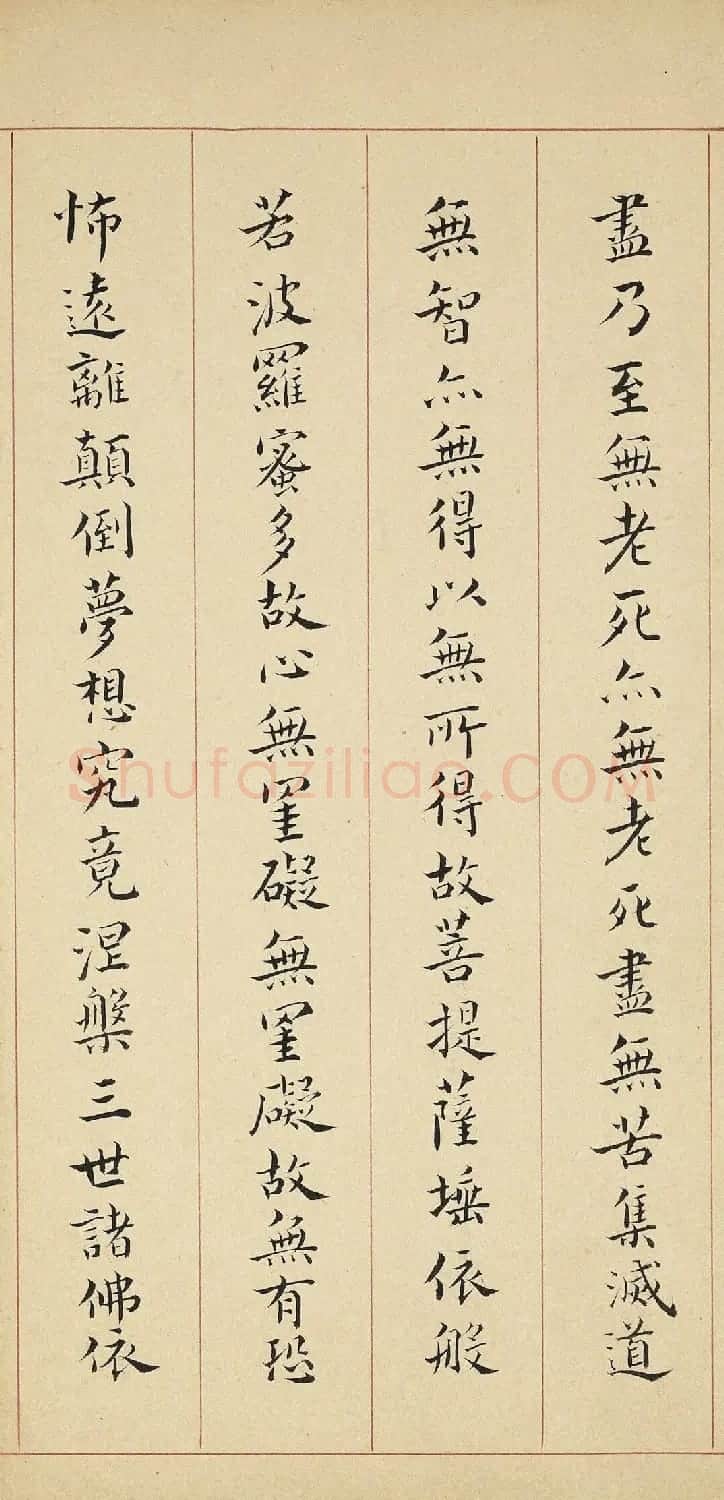 盡乃至無老死亦無老死盡無苦集滅道
無智亦無得以無所得故菩提薩埵依般
若波羅蜜多故心無罣礙無罣礙故無有恐
怖遠離顛倒夢想究竟涅槃三世諸佛依
Shufaziliao.COM